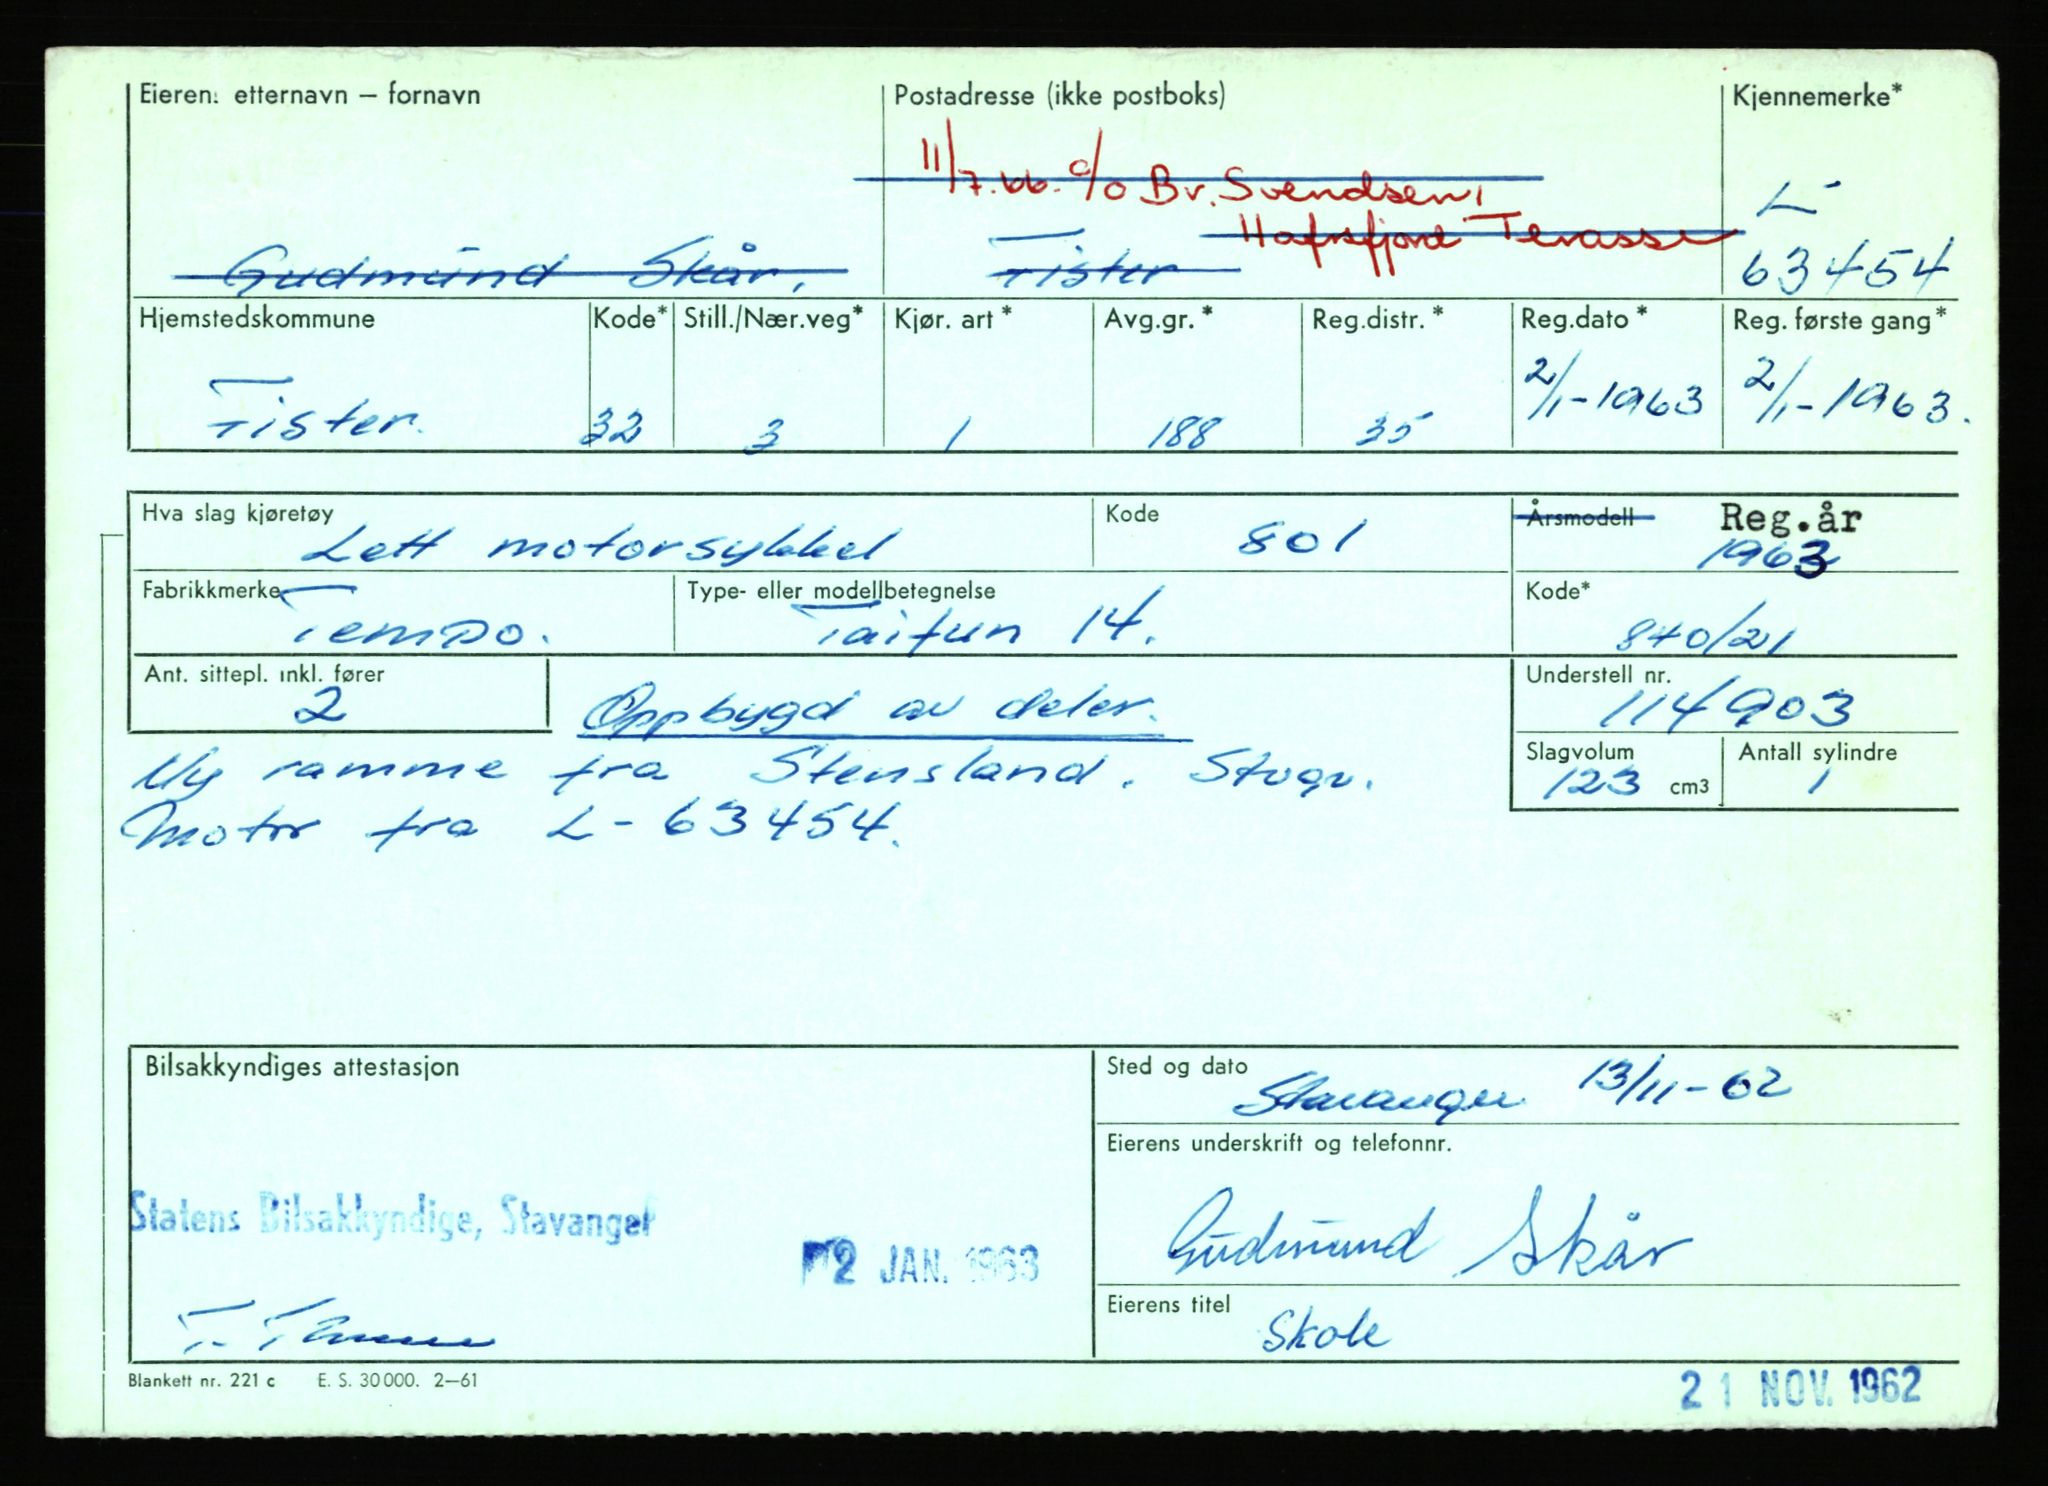 Eieren: etternavn – fornavn Postadresse (ikke postboks) Kjennemerke*
11/7.66. c/o Br. Svendsen,
Hafrsfjord Terasse
L-
Gudmund Skår. Tister 63454
Hjemstedskommune Kode* Still./Nær.veg* Kjør. art* Avg.gr.* Reg.distr.* Reg.dato* Reg. første gang*
Tister. 32 3 1 188 35 2/1-1963 2/1-1963.
Hva slag kjøretøy Kode Årsmodell Reg.år
Lett motorsykkel 801 1963
Fabrikkmerke Type- eller modellbetegnelse Kode*
Tempo. Taifun 14. 840/21
Ant. sittepl. inkl. fører Understell nr.
2 Oppbygd av deler. 114903
Ny ramme fra Stensland. Stvgr.
Slagvolum Antall sylindre
123 cm3 1
Motor fra L-63454.
Bilsakkyndiges attestasjon Sted og dato
Stavanger 13/11-62
Eierens underskrift og telefonnr.
Statens Bilsakkyndige, Stavanger
Gudmund Skår
2 JAN. 1963
Eierens titel
Skole
Blankett nr. 221 c E. S. 30 000. 2–61
21 NOV. 1962